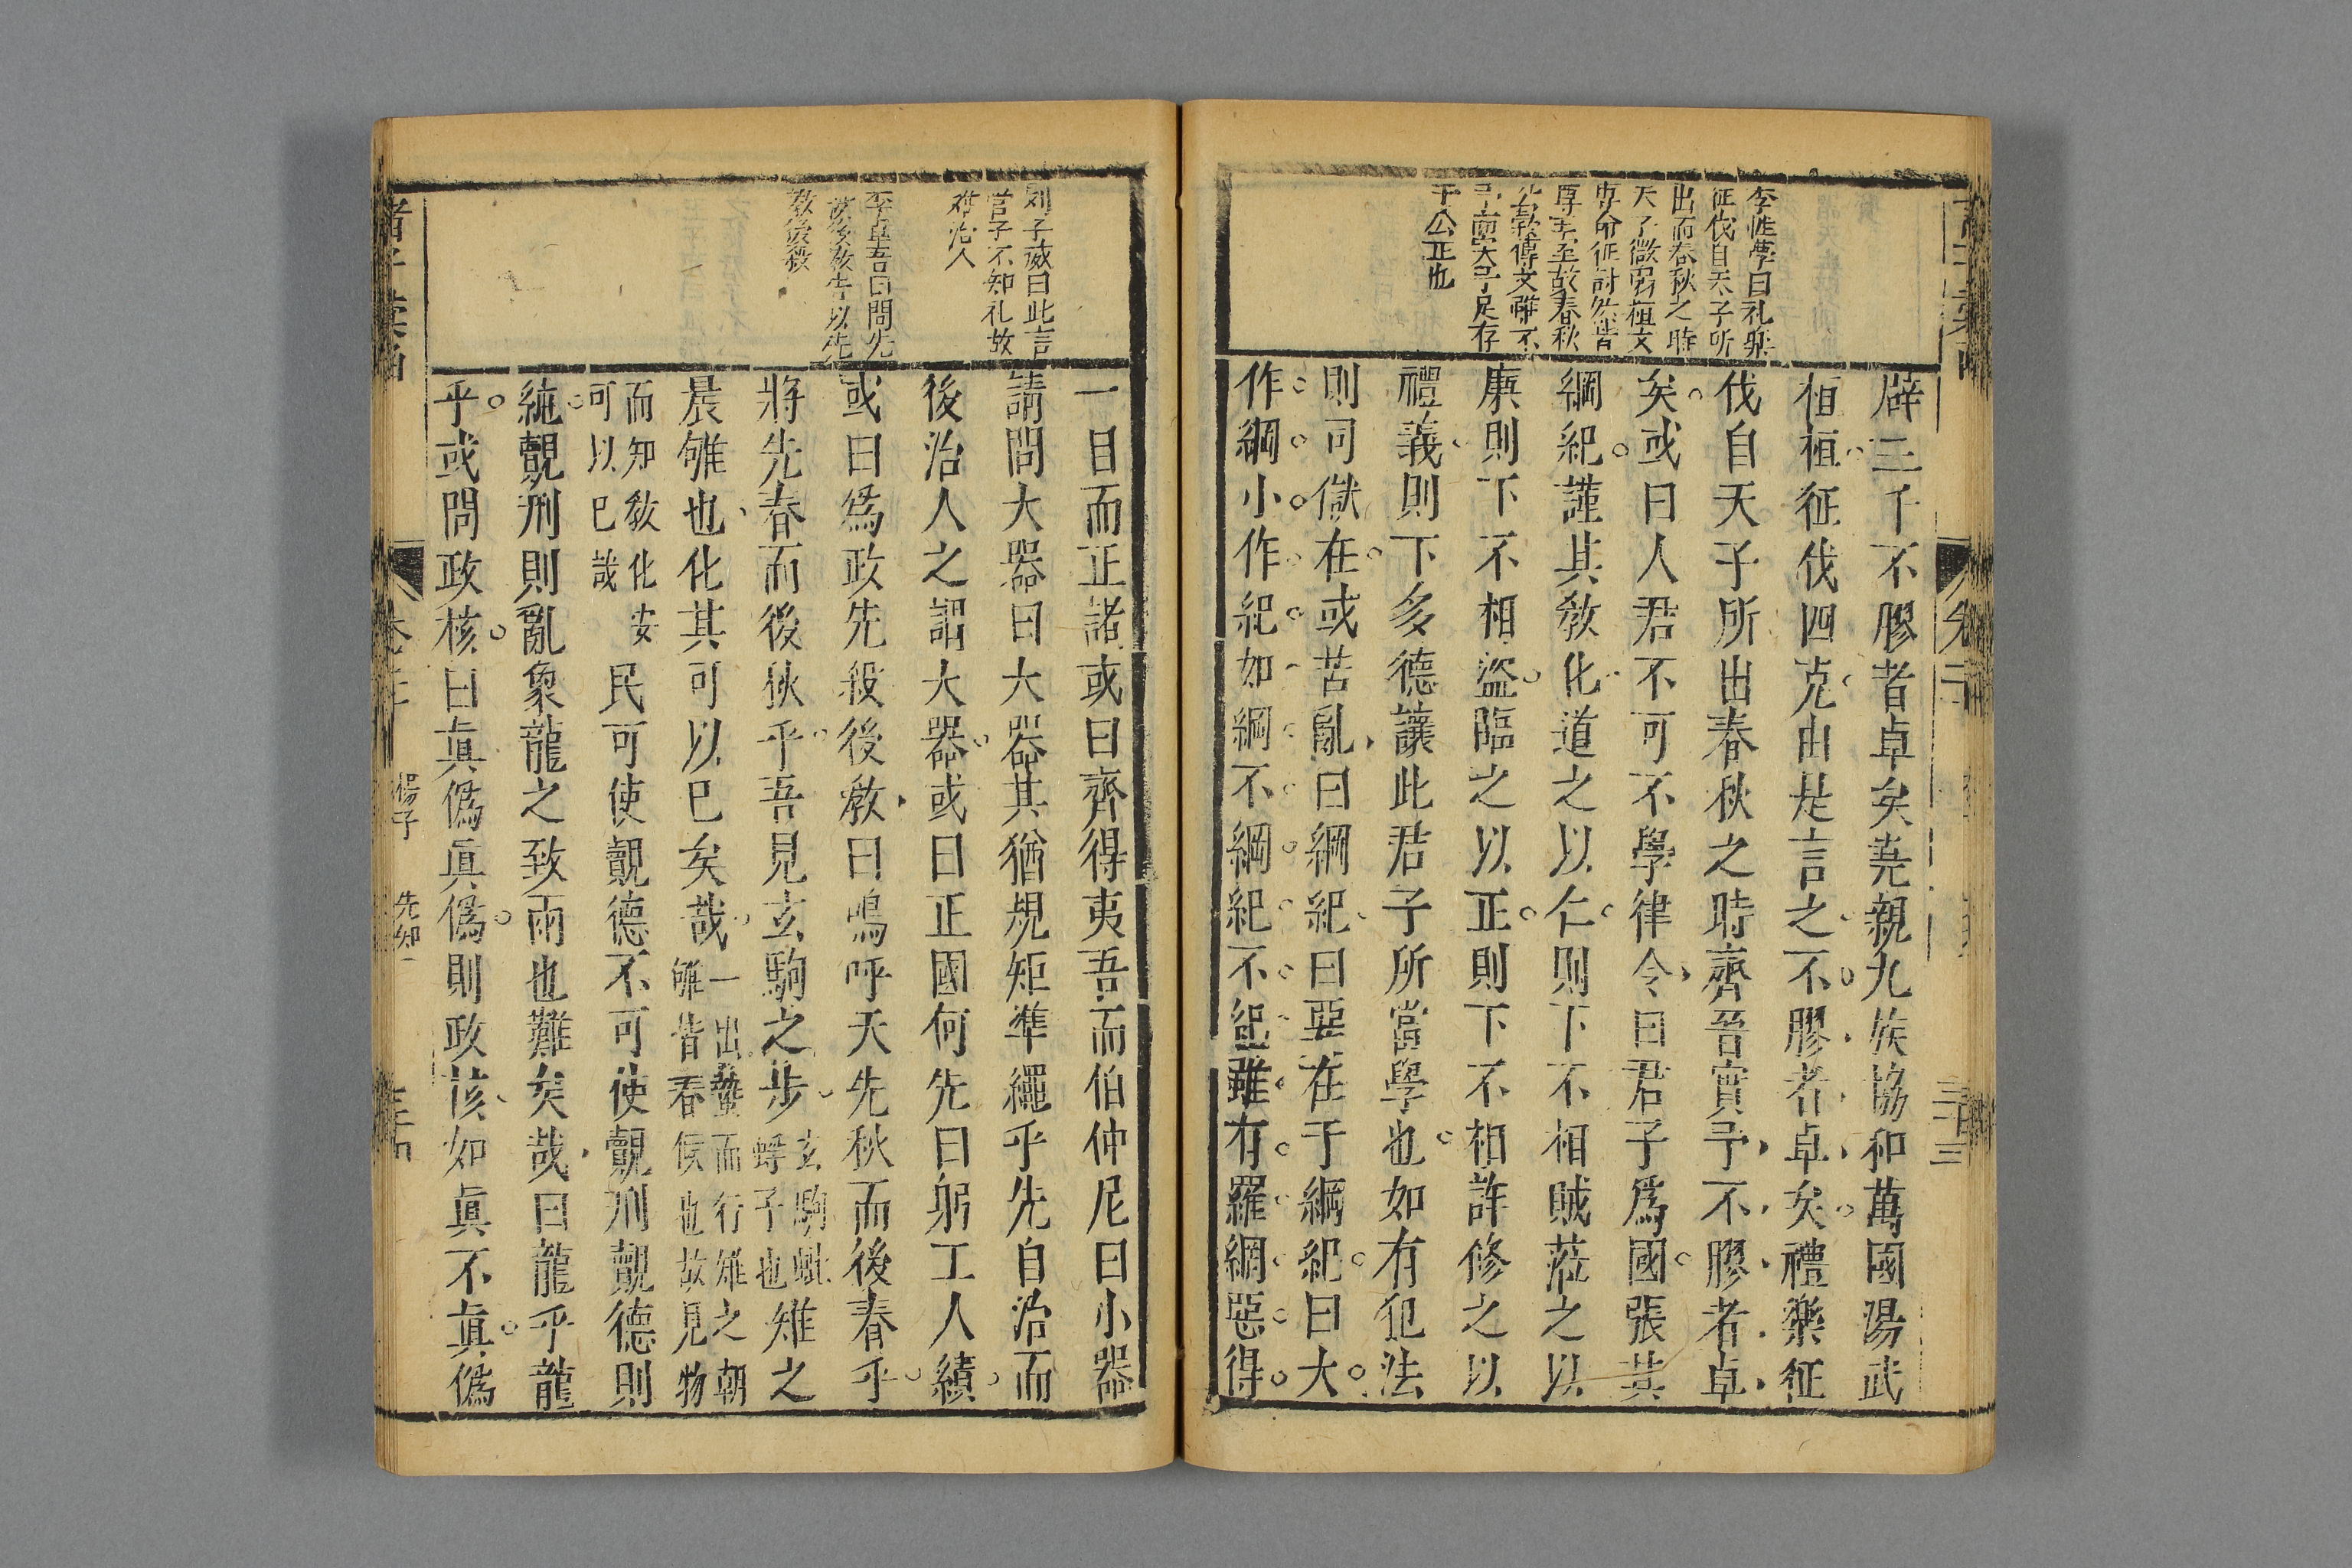 李惟學曰礼樂
征伐自天子所
出而春秋之時
天子微弱桓文
專命征討然皆
尊王至故春秋
公穀傳文雖不
予實大予足存
于公正也
辟三千不膠者卓矣堯親九族協和萬國湯武
桓桓征伐四克由是言之不膠者卓矣禮樂征
伐自天子所出春秋之時齊晉實予不膠者卓
矣或曰人君不可不學律令曰君子爲國張其
綱紀謹其教化道之以仁則下不相賊蒞之以
廉則下不相盜臨之以正則下不相詐修之以
禮義則下多德讓此君子所當學也如有犯法
則司獄在或苦亂曰綱紀曰惡在于綱紀曰大
作綱小作紀如綱不綱紀不紀雖有羅網惡得
卷二
三百三
一目而正諸或曰齊得夷吾而伯仲尼曰小器
請問大器曰大器其猶規矩準繩乎先自治而
後治人之謂大器或曰正國何先曰躬工人績
或曰爲政先殺後教曰嗚呼天先秋而後春乎
將先春而後秋乎吾見玄駒之步玄駒蚍蜉子也雉之
晨雊也化其可以巳矣哉一出蟄而行雉之朝雊皆春候也故見物
而知教化安可以巳哉民可使覿德不可使覿刑覿德則
純覿刑則亂象龍之致雨也難矣哉曰龍乎龍
乎或問政核曰眞僞眞僞則政核如眞不眞僞
列子威曰此言
管子不知礼故
難治人
李卓吾曰問先
殺後教告以先
教後殺
諸子彙函
卷二
揚子
先知